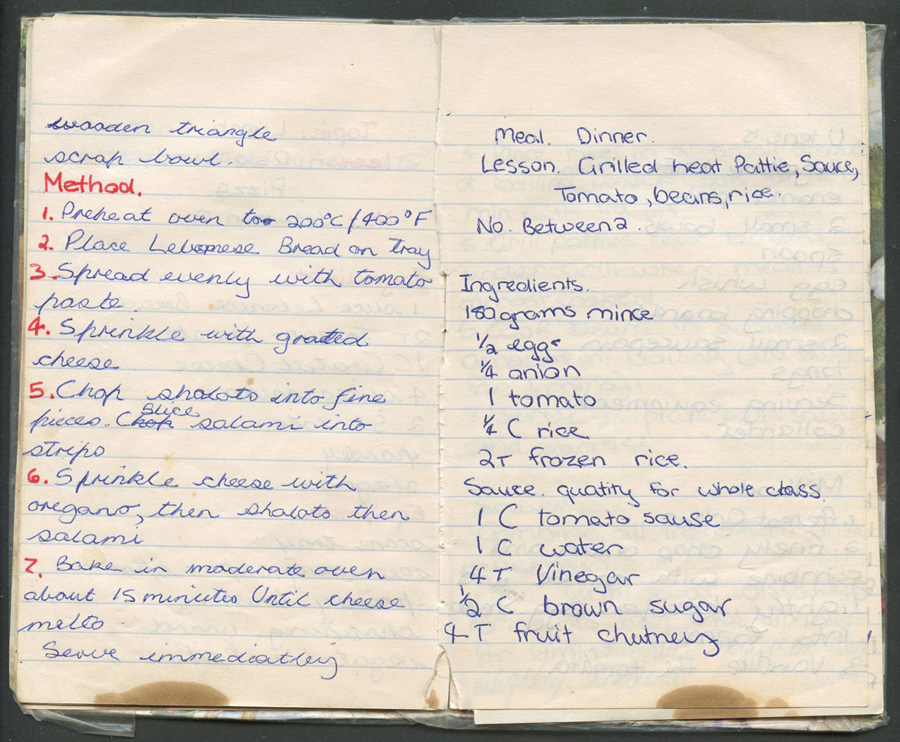 wooden triangle
scrap bowl.
Method.
1. Preheat oven to 200°C/400°F
2. Place Lebonese Bread on Tray
3. Spread evenly with tomato
paste
4. Sprinkle with grated
cheese
5. Chop shaloto into fine
pieces. Chop Slice salami into
strips
6. Sprinkle cheese with
oregano, then shaloto then
salami
7. Bake in moderate oven
about 15 minutes Until cheese
melts
Serve immediatley
Meal. Dinner.
Lesson. Grilled meat Pattie, Sauce,
Tomato, beans, rice.
No. Between 2.
Ingredients.
180 grams mince
1/2 egg
1/4 onion
1 tomato
1/4 C rice
2T frozen rice.
Sauce. quatity for whole class.
1 C tomato sause
1 C water
4 T Vinegar
1/2 C brown sugar
4 T fruit chutney